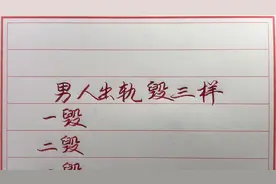 男人出轨毁三样
一毁
二毁